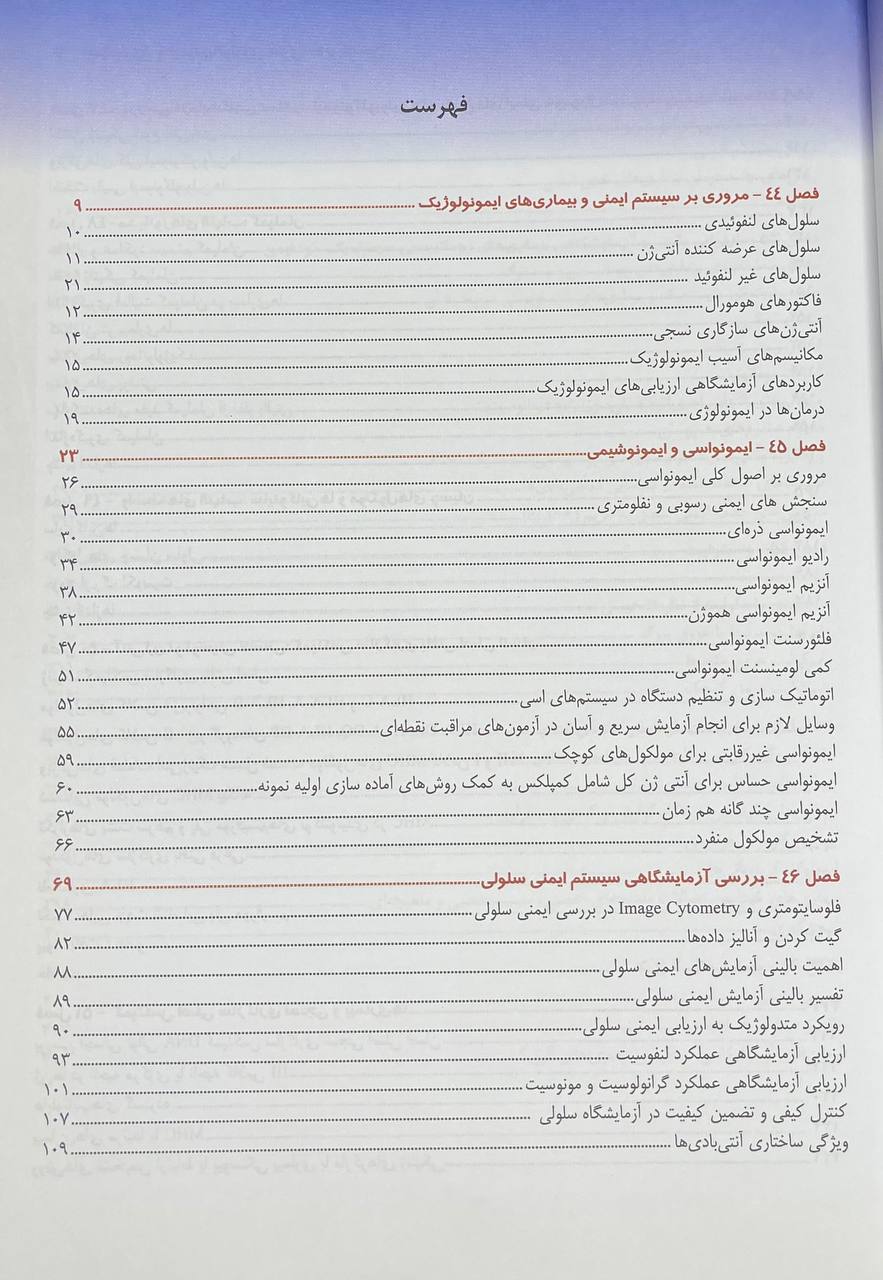 فهرست
فصل ٤٤ - مروری بر سیستم ایمنی و بیماری‌های ایمونولوژیک ۹
سلول‌های لنفوئیدی ۱۰
سلول‌های عرضه کننده آنتی‌ژن ۱۱
سلول‌های غیر لنفوئید ۲۱
فاکتورهای هومورال ۱۲
آنتی‌ژن‌های سازگاری نسجی ۱۴
مکانیسم‌های آسیب ایمونولوژیک ۱۵
کاربردهای آزمایشگاهی ارزیابی‌های ایمونولوژیک ۱۵
درمان‌ها در ایمونولوژی ۱۹
فصل ٤٥ - ایمونواسی و ایمونوشیمی ۲۳
مروری بر اصول کلی ایمونواسی ۲۶
سنجش های ایمنی رسوبی و نفلومتری ۲۹
ایمونواسی ذره‌ای ۳۰
رادیو ایمونواسی ۳۴
آنزیم ایمونواسی ۳۸
آنزیم ایمونواسی هموژن ۴۲
فلئورسنت ایمونواسی ۴۷
کمی لومینسنت ایمونواسی ۵۱
اتوماتیک سازی و تنظیم دستگاه در سیستم‌های اسی ۵۲
وسایل لازم برای انجام آزمایش سریع و آسان در آزمون‌های مراقبت نقطه‌ای ۵۵
ایمونواسی غیررقابتی برای مولکول‌های کوچک ۵۹
ایمونواسی حساس برای آنتی ژن کل شامل کمپلکس به کمک روش‌های آماده سازی اولیه نمونه ۶۰
ایمونواسی چند گانه هم زمان ۶۳
تشخیص مولکول منفرد ۶۶
فصل ٤٦ - بررسی آزمایشگاهی سیستم ایمنی سلولی ۶۹
فلوسایتومتری و Image Cytometry در بررسی ایمنی سلولی ۷۷
گیت کردن و آنالیز داده‌ها ۸۲
اهمیت بالینی آزمایش‌های ایمنی سلولی ۸۸
تفسیر بالینی آزمایش ایمنی سلولی ۸۹
رویکرد متدولوژیک به ارزیابی ایمنی سلولی ۹۰
ارزیابی آزمایشگاهی عملکرد لنفوسیت ۹۳
ارزیابی آزمایشگاهی عملکرد گرانولوسیت و مونوسیت ۱۰۱
کنترل کیفی و تضمین کیفیت در آزمایشگاه سلولی ۱۰۷
ویژگی ساختاری آنتی‌بادی‌ها ۱۰۹